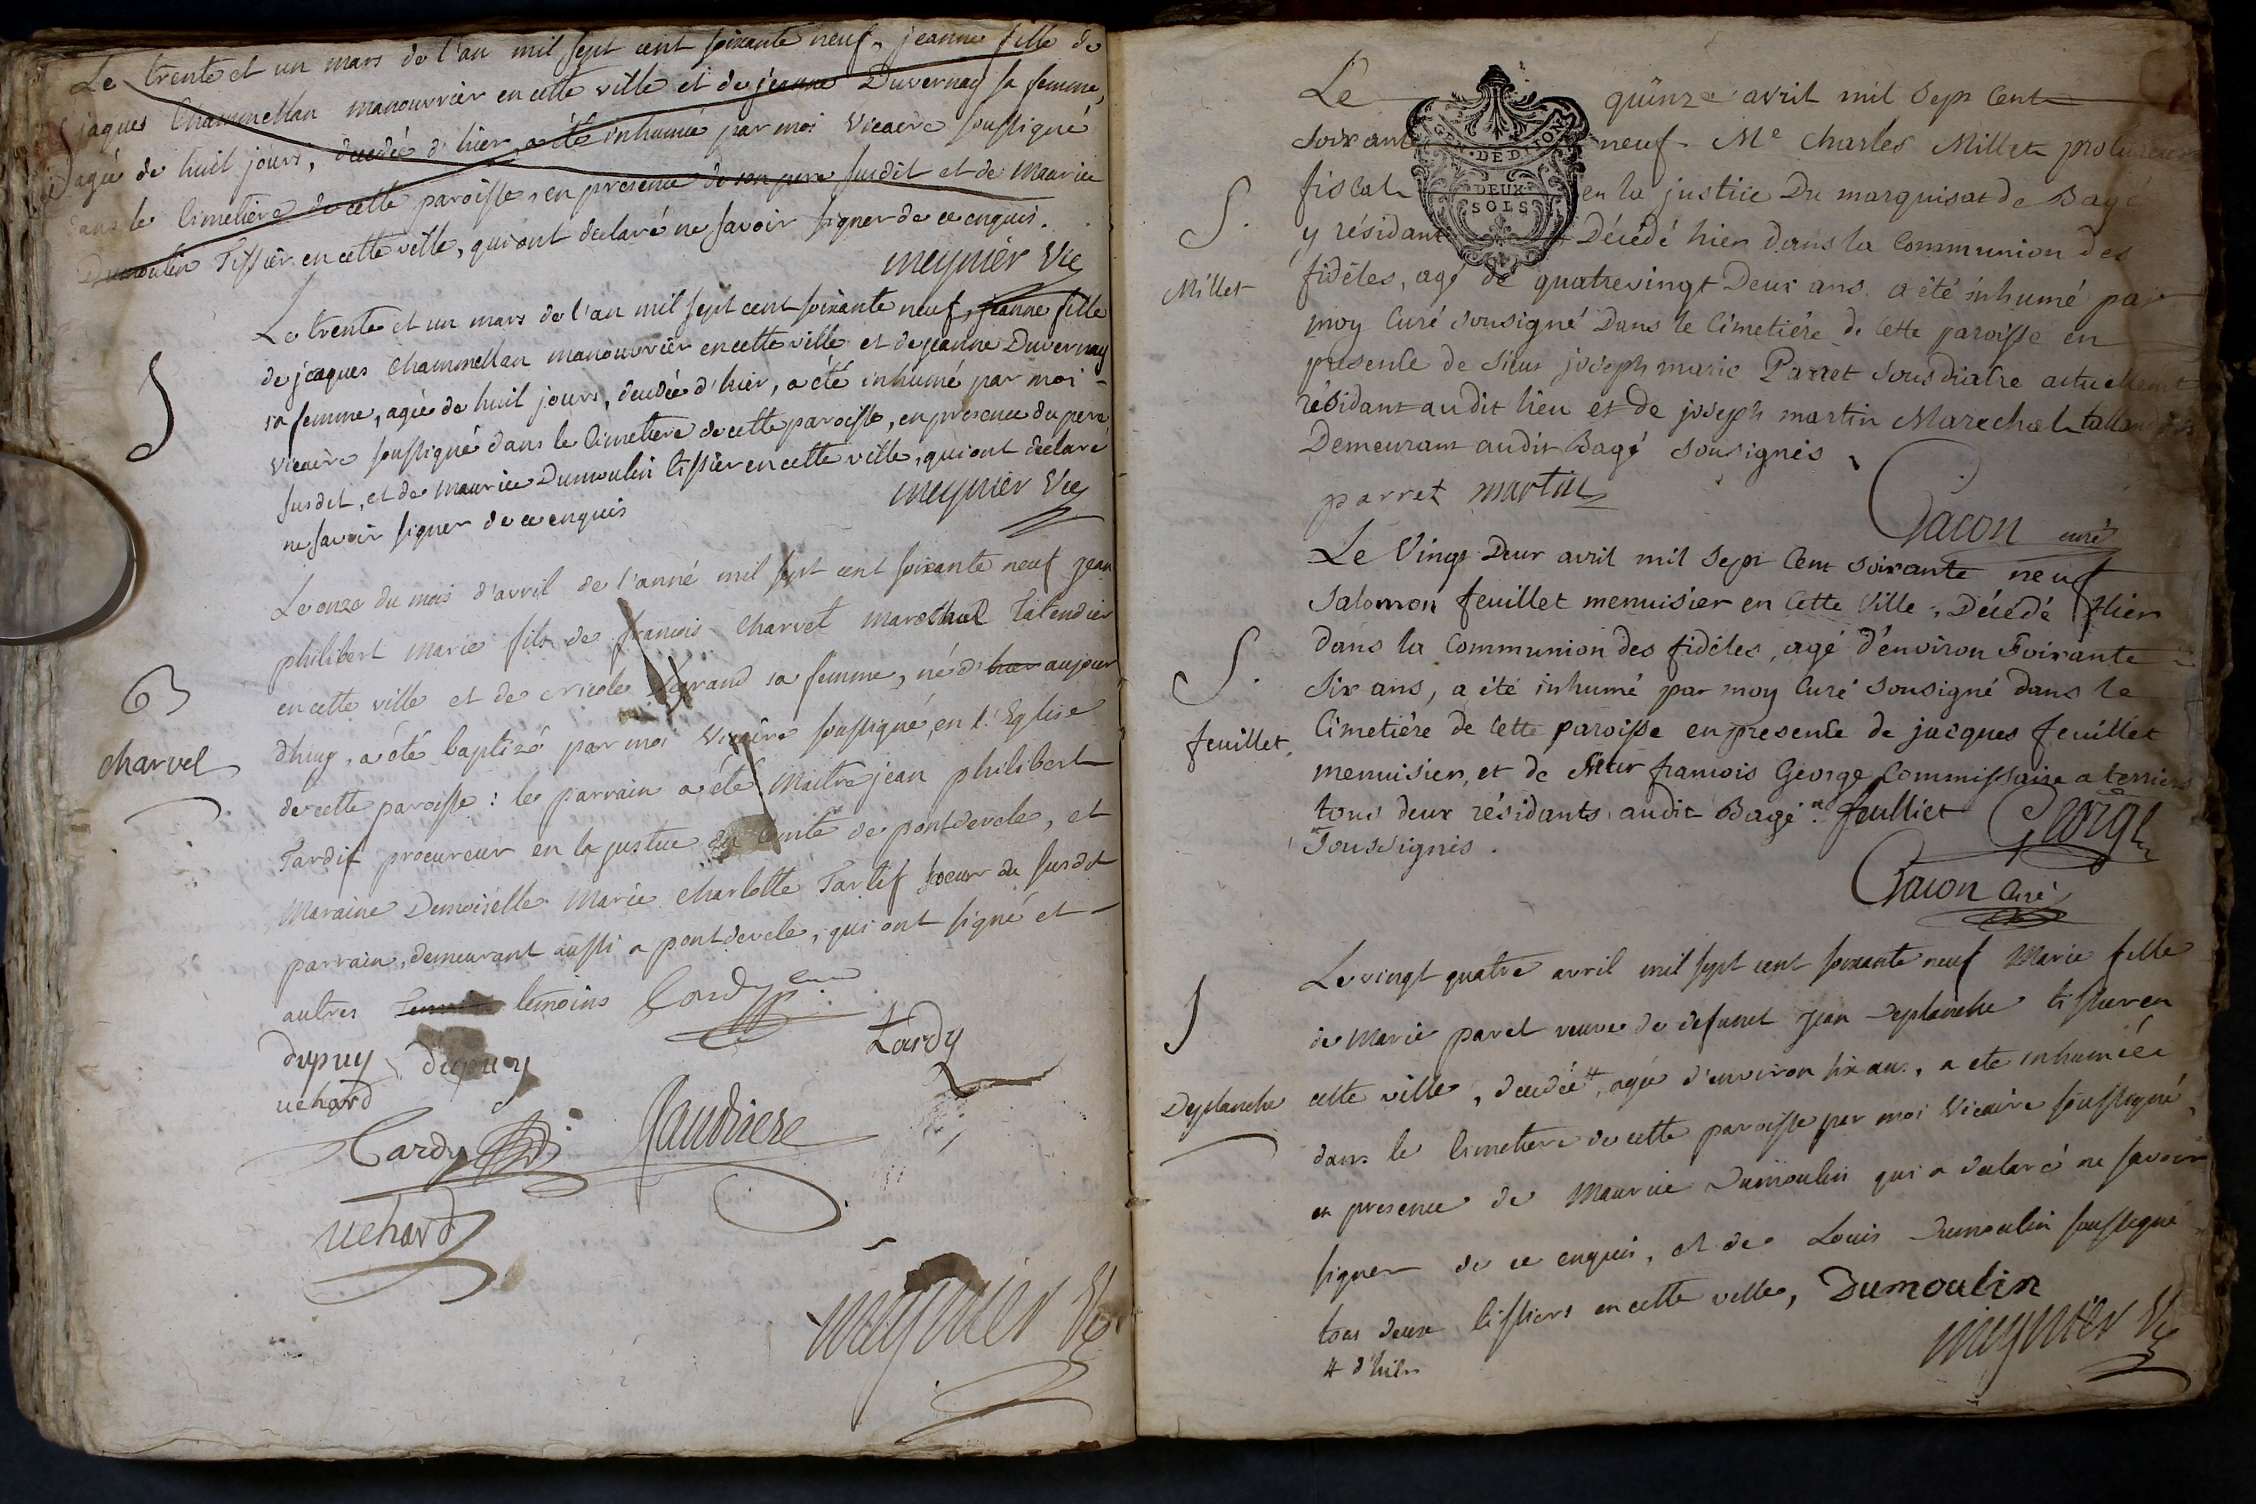 Le trente et un mars de l'an mil sept cent soixante neuf, jeanne fille de
jaques Chammellan manouvrier en cette ville et de jeanne Duvernay sa femme,
agée de huit jours, decedée d'hier, a été inhumée par moi Vicaire soussigné
dans le Cimetiere de cette paroisse, en presence de son pere susdit et de Maurice
Dumoulin Tissier en cette ville, qui ont declaré ne savoir signer de ce enquis.
meynier Vic
S
Le trente et un mars de l'an mil sept cent soixante neuf, jeanne fille
de jcaques Chammellan manouvrier en cette ville et de jeanne Duvernay
sa femme, agée de huit jours, decedée d'hier, a été inhumé par moi
Vicaire soussigné dans le Cimetiere de cette paroisse, en presence du pere
susdit, et de Maurice Dumoulin tissier en cette ville, qui ont declaré
ne savoir signer de ce enquis
meynier Vic
B
charvet
Le onze du mois d'avril de l'anné mil sept cent soixante neuf jean
philibert marie fils de francois Charvet marechal Talendier
en cette ville et de Nicole Legrand sa femme, né d'hier aujour
dhuy, a été baptizé par moi Vicaire soussigné, en l'Eglise
de cette paroisse : le parrain a été Maitre jean philibert
Tardif procureur en la justice du Comté de pontdevele, et
Maraine Demoiselle Marie Charlotte Tartif soeur du susdit
parrain, demeurant aussi a pontdevele, qui ont signé et
autres temoins
dupuy dupuy
uchard
Tardy
Tardy
Jaudriere
uchard
meynier Vic
S.
Millet
Le quinze avril mil Sept Cent
Soixante neuf. Me Charles Millet procureur
fiscal en la justice Du marquisat de Bagé
y résidant Décédé hier dans la Communion des
fidéles, agé de quatrevingt Deux ans. a été inhumé par
moy Curé sousigné Dans le Cimetiére de Cette paroisse en
presence de sieur joseph marie Parret Sousdiacre actuellement
résidant audit lieu et de joseph martin Marechal talland
Demeurant audit Bagé sousignés
parret martin
Chacon curé
S.
feuillet.
Le Vingt Deux avril mil Sept Cent soixante neuf
Salomon feuillet menuisier en Cette Ville, Décédé Hier
dans la Communion des fidéles, agé d'environ Soixante
Six ans, a été inhumé par moy Curé Sousigné dans le
Cimetiére de Cette paroisse en presence de jacques feuillet
menuisier, et de Sieur francois George Commissaire a terriers
tous deux résidants audit Bagé feulliet George
Soussignés.
Chacon Curé
S
Deplanche
Le vingt quatre avril mil sept cent soixante neuf Marie fille
de Marie paret veuve de defunct jean Deplanche tissier en
cette ville, decedée #, agée d'environ six ans, a ete inhumée
dans le Cimetiere de cette paroisse par moi Vicaire soussigné,
en presence de Maurice Dumoulin qui a declaré ne savoir
signer de ce enquis, et de Louis Dumoulin soussigné
tous deux tissiers en cette ville, Dumoulin
# d'hier
meynier Vic
DEUX
SOLS